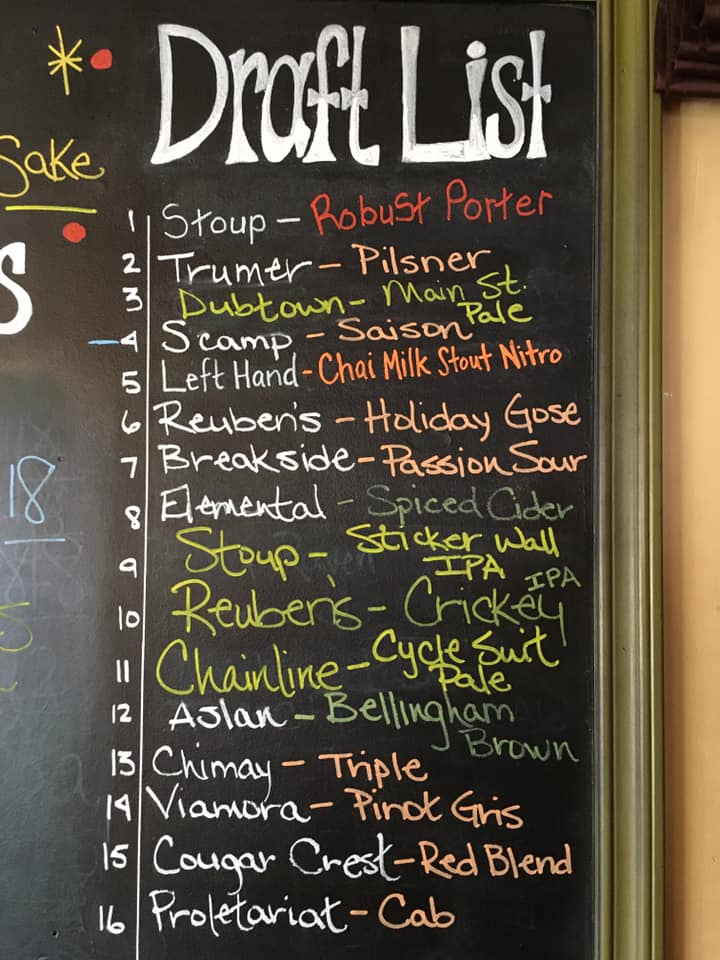 Draft List
Sake
S
18
S
1 Stoup - Robust Porter
2 Trumer - Pilsner
3 Dubtown - Main St.
Pale
4 Scamp - Saison
5 Left Hand - Chai Milk Stout Nitro
6 Reuben's - Holiday Gose
7 Breakside - Passion Sour
8 Elemental - Spiced Cider
9 Stoup - Sticker Wall
IPA
10 Reuben's - Crickey IPA
11 Chainline - Cycle Suit
Pale
12 Aslan - Bellingham
Brown
13 Chimay - Triple
14 Viamora - Pinot Gris
15 Cougar Crest - Red Blend
16 Proletariat - Cab